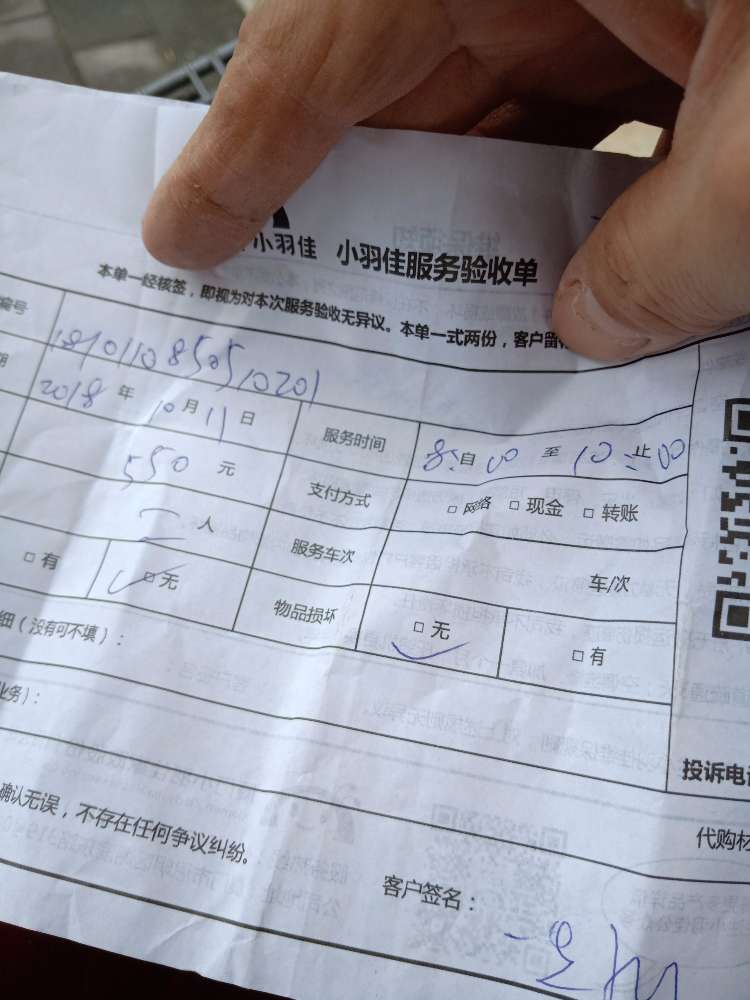 小羽佳 小羽佳服务验收单
本单一经核签，即视为对本次服务验收无异议。本单一式两份，客户留
编号 1810110850510201
期 2018 年 10 月 11 日 服务时间 8:00 自 至 10:00 止
550 元 支付方式 □ 网络 □ 现金 □ 转账
二 人 服务车次 车/次
□ 有 □ 无 物品损坏 □ 无 □ 有
细（没有可不填）：
业务）：
投诉电
确认无误，不存在任何争议纠纷。
代购材
客户签名：